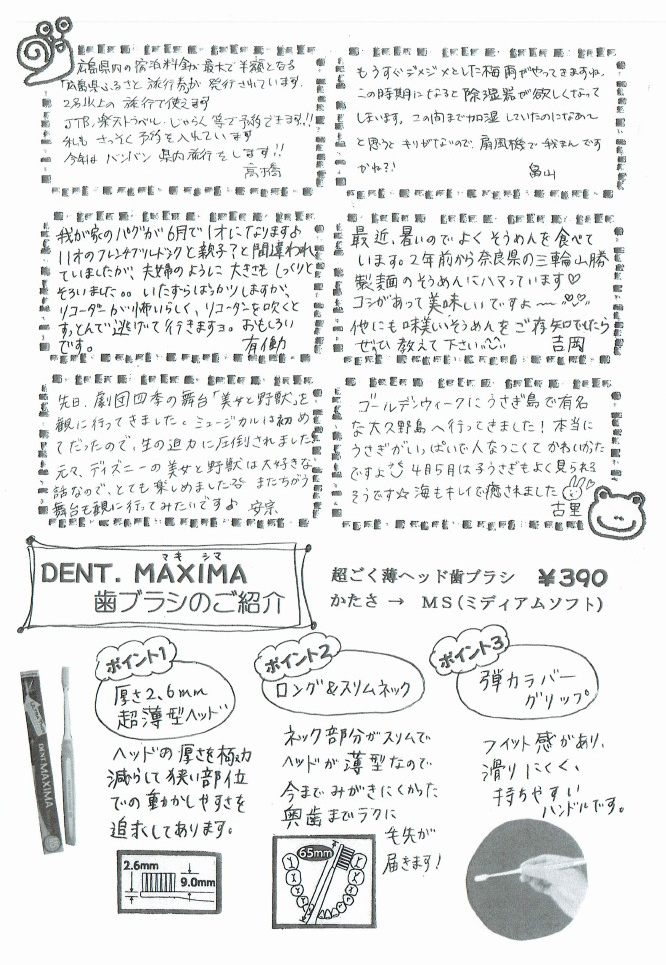 広島県内の宿泊料金が最大で半額となる
「広島県ふるさと旅行券」が発行されています。
2名以上の旅行で使えます
JTB、楽天トラベル、じゃらん等で予約できます!!
私も さっそく予約を入れています
今年は バンバン 県内旅行をします!!
高橋
もうすぐジメジメとした梅雨がやってきますね。
この時期になると除湿器が欲しくなって
しまいます。この前まで加湿していたのになあ〜
と思うと キリがないので、扇風機で我まんです
かね?!
畠山
我が家のパグが6月で1才になりますよ
11才のフレンチブルドッグと親子?と間違われ
ていましたが、夫婦のように大きさも しっくりと
そろいました。。いたずらばかりしますが、
リコーダーが怖いらしく、リコーダーを吹くと
すっとんで逃げて行きますョ。おもしろい
です。
有働
最近、暑いのでよくそうめんを食べて
います。2年前から奈良県の三輪山勝
製麺のそうめんにハマっています♡
コシがあって美味しいですよ〜
他にも味美いそうめんをご存知でしたら
ぜひ 教えて下さい
吉岡
先日、劇団四季の舞台「美女と野獣」を
観に行ってきました。ミュージカルは初め
てだったので、生の迫力に圧倒されました。
元々、ディズニーの美女と野獣は大好きな
話なので、とても楽しめました またちがう
舞台も観に行ってみたいですよ
安宗
ゴールデンウィークにうさぎ島で有名
な大久野島へ行ってきました!本当に
うさぎがいっぱいで人なつこくてかわいかた
ですよ 4月5月は子うさぎもよく見られる
そうです☆海もキレイで癒されました
古里
マキシマ
DENT. MAXIMA
歯ブラシのご紹介
超ごく薄ヘッド歯ブラシ ¥390
かたさ → MS(ミディアムソフト)
ポイント1
厚さ2.6mm
超薄型ヘッド
ヘッドの厚さを極力
減らして狭い部位
での動かしやすさを
追求してあります。
2.6mm
9.0mm
ポイント2
ロング&スリムネック
ネック部分がスリムで
ヘッドが薄型なので
今までみがきにくかった
奥歯までラクに
毛先が
届きます!
65mm
ポイント3
弾力ラバー
グリップ
フィット感があり、
滑りにくく、
持ちやすい
ハンドルです。
DENT.MAXIMA